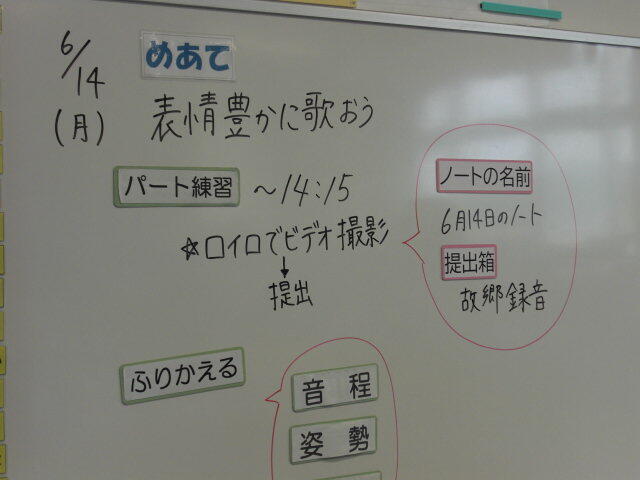 6/14
(月)
めあて
表情豊かに歌おう
パート練習 〜14:15
☆ロイロでビデオ撮影
↓
提出
ノートの名前
6月14日のノート
提出箱
故郷録音
ふりかえる
音程
姿勢